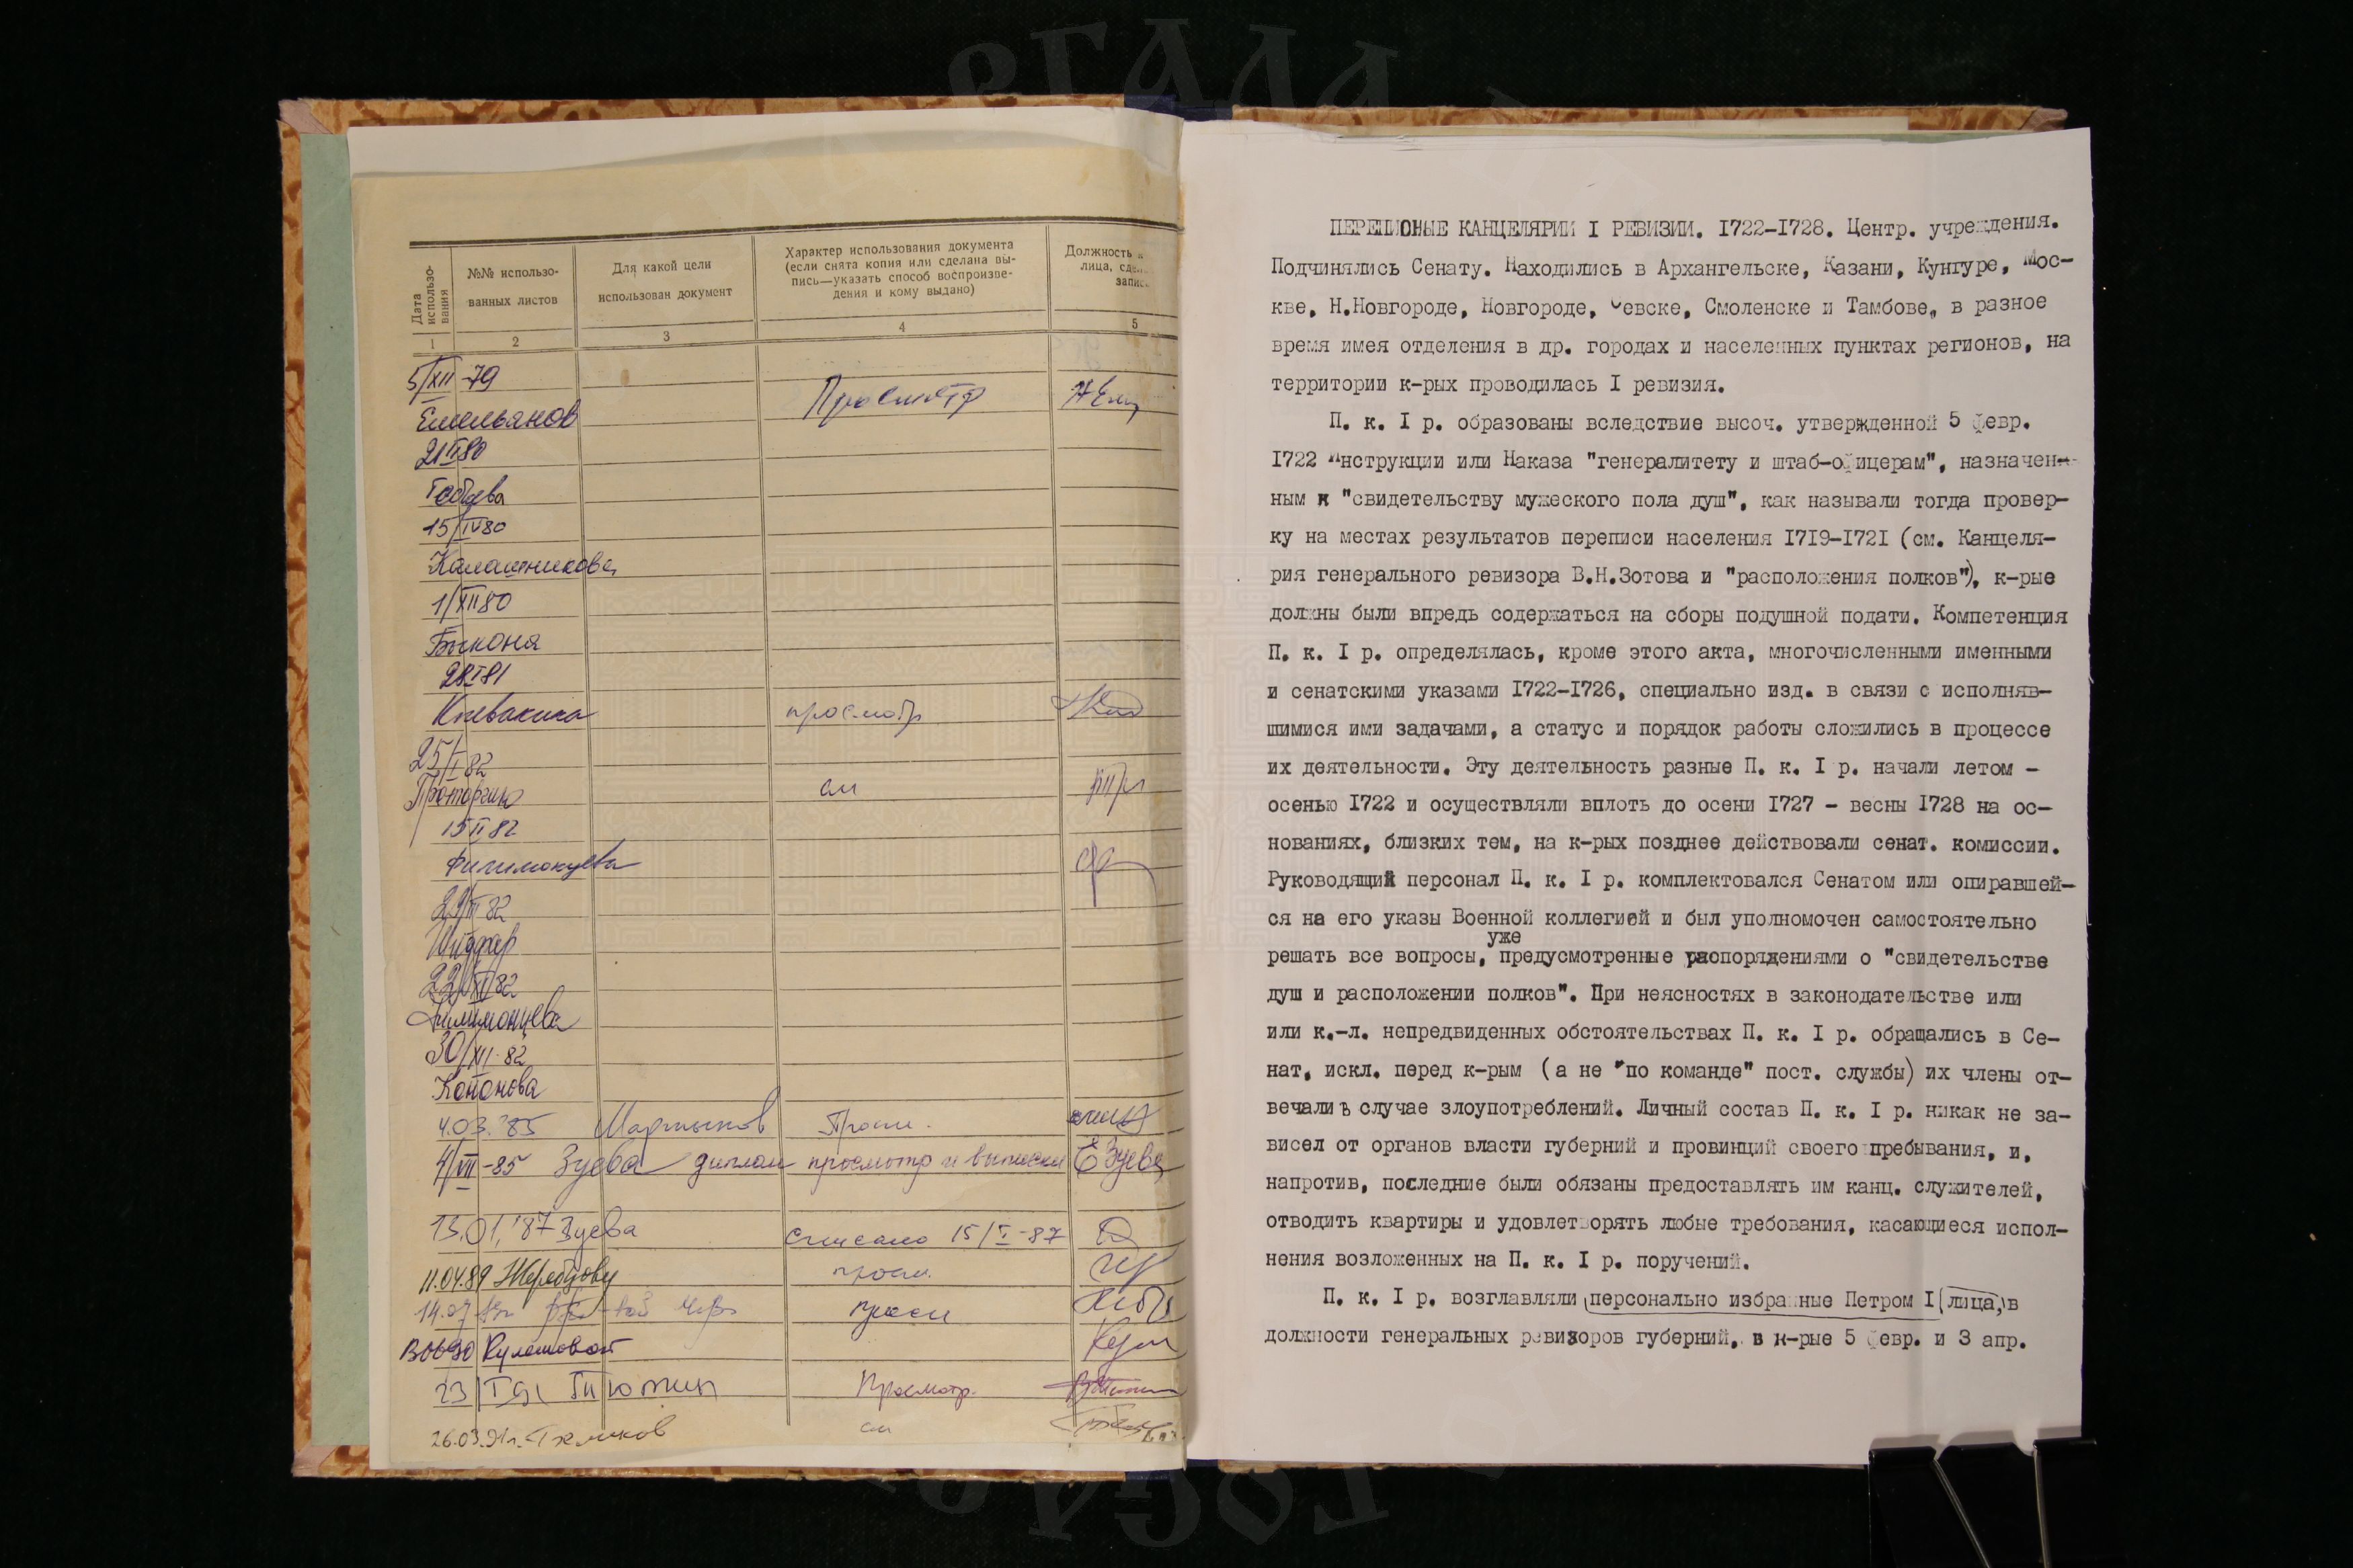 Дата использо-вания
№№ использо-
ванных листов
Для какой цели
использован документ
Характер использования документа
(если снята копия или сделана вы-
пись—указать способ воспроизве-
дения и кому выдано)
Должность
лица,
1 2 3 4 5
5/XII-79
Емельянов Просмотр
21 80
15/IV 80
Калашникова
1/XII 80
Быконя
28 I 81
просмотр
25/I 82
см
15 II 82
Филимонцева
22/XII 82
Филимонцева
30/XII-82
Кононова
4.03.85 Мартынов Просм.
4/VII-85 Зуева диплом просмотр и выписки Е Зуева
13.01.87 Зуева списано 15/I-87
11.04.89 просм.
14.07 просм
Кулешовой
23 Просмотр.
26.03.91г. см
ПЕРЕПИСНЫЕ КАНЦЕЛЯРИИ I РЕВИЗИИ. 1722-1728. Центр. учреждения.
Подчинялись Сенату. Находились в Архангельске, Казани, Кунгуре, Мос-
кве, Н.Новгороде, Новгороде, евске, Смоленске и Тамбове, в разное
время имея отделения в др. городах и населенных пунктах регионов, на
территории к-рых проводилась I ревизия.
П. к. I р. образованы вследствие высоч. утвержденной 5 февр.
1722 Инструкции или Наказа "генералитету и штаб-офицерам", назначен-
ным к "свидетельству мужеского пола душ", как называли тогда провер-
ку на местах результатов переписи населения 1719-1721 (см. Канцеля-
рия генерального ревизора В.Н.Зотова и "расположения полков"), к-рые
должны были впредь содержаться на сборы подушной подати. Компетенция
П. к. I р. определялась, кроме этого акта, многочисленными именными
и сенатскими указами 1722-1726, специально изд. в связи с исполняв-
шимися ими задачами, а статус и порядок работы сложились в процессе
их деятельности. Эту деятельность разные П. к. I р. начали летом -
осенью 1722 и осуществляли вплоть до осени 1727 - весны 1728 на ос-
нованиях, близких тем, на к-рых позднее действовали сенат. комиссии.
Руководящий персонал П. к. I р. комплектовался Сенатом или опиравшей-
ся на его указы Военной коллегией и был уполномочен самостоятельно
уже
решать все вопросы, предусмотренные распоряжениями о "свидетельстве
душ и расположении полков". При неясностях в законодательстве или
или к.-л. непредвиденных обстоятельствах П. к. I р. обращались в Се-
нат, искл. перед к-рым (а не "по команде" пост. службы) их члены от-
вечали в случае злоупотреблений. Личный состав П. к. I р. никак не за-
висел от органов власти губерний и провинций своего пребывания, и,
напротив, последние были обязаны предоставлять им канц. служителей,
отводить квартиры и удовлетворять любые требования, касающиеся испол-
нения возложенных на П. к. I р. поручений.
П. к. I р. возглавляли персонально избранные Петром I лица, в
должности генеральных ревизоров губерний, в к-рые 5 февр. и 3 апр.